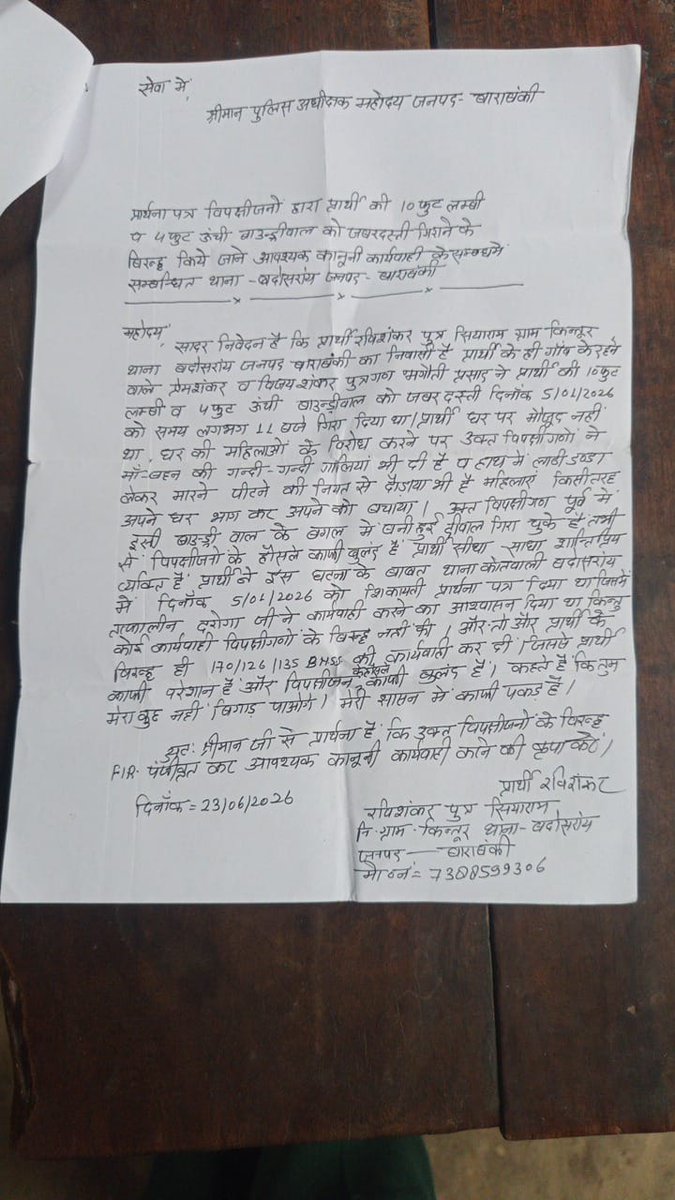 सेवा में,
श्रीमान पुलिस अधीक्षक महोदय जनपद- बाराबंकी
प्रार्थना पत्र विपक्षीजनो द्वारा प्रार्थी की 10 फुट लम्बी
व 4 फुट ऊंची बाउन्ड्रीवाल को जबरदस्ती गिराने के
विरुद्ध किये जाने आवश्यक कानूनी कार्यवाही के सम्बन्ध में
सम्बन्धित थाना - बदोसरांय जनपद - बाराबंकी
महोदय,
सादर निवेदन है कि प्रार्थी रविशंकर पुत्र सियाराम ग्राम किन्तूर
थाना बदोसरांय जनपद बाराबंकी का निवासी है प्रार्थी के ही गाँव के रहने
वाले प्रेमशंकर व विजय शंकर पुत्रगण भगौती प्रसाद ने प्रार्थी की 10 फुट
लम्बी व 4 फुट ऊंची बाउन्ड्रीवाल को जबरदस्ती दिनाँक 5/01/2026
को समय लगभग 11 बजे गिरा दिया था। प्रार्थी घर पर मौजूद नहीं
था घर की महिलाओं के विरोध करने पर उक्त विपक्षीगणो ने
माँ-बहन की गन्दी-गन्दी गालियां भी दी है व हाथ में लाठी डण्डा
लेकर मारने पीटने की नियत से दौड़ाया भी है महिलाएं किसी तरह
अपने घर भाग कर अपने को बचाया। उक्त विपक्षीगण पूर्व में
इसी बाउन्ड्री वाल के बगल में बनी हुई दीवाल गिरा चुके है तभी
से विपक्षीजनो के हौसले काफी बुलंद है प्रार्थी सीधा साधा शान्तिप्रिय
व्यक्ति है प्रार्थी ने इस घटना के बाबत थाना कोतवाली बदोसरांय
में दिनाँक 5/01/2026 को शिकायती प्रार्थना पत्र दिया था जिसमें
तत्कालीन दरोगा जी ने कार्यवाही करने का आश्वासन दिया था किन्तु
कोई कार्यवाही विपक्षीगणो के विरुद्ध नही की। और तो और प्रार्थी के
विरुद्ध ही 170/126/135 BNSS की कार्यवाही कर दी। जिससे प्रार्थी
काफी परेशान है और विपक्षीजन के हौसले काफी बुलंद है। कहते है कि तुम
मेरा कुछ नहीं बिगाड़ पाओगे। मेरी शासन में काफी पकड़ है।
अतः श्रीमान जी से प्रार्थना है कि उक्त विपक्षीजनो के विरुद्ध
FIR पंजीकृत कर आवश्यक कानूनी कार्यवाही करने की कृपा करें।
प्रार्थी रविशंकर
दिनाँक = 23/06/2026
रविशंकर पुत्र सियाराम
नि. ग्राम - किन्तूर थाना - बदोसरांय
जनपद — बाराबंकी
मो०नं = 7388599306